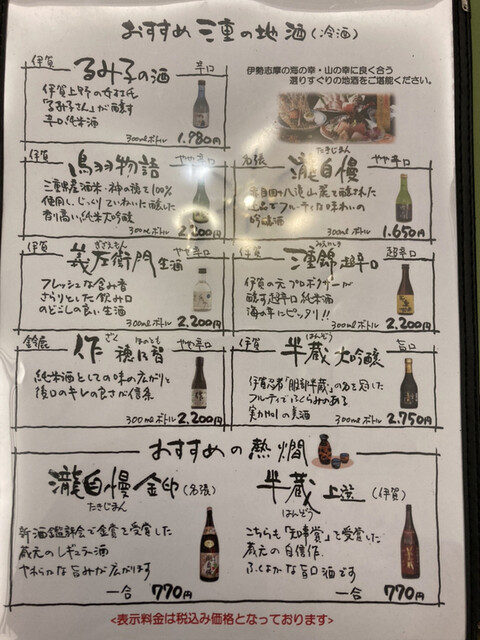 おすすめ 三重の地酒(冷酒)
伊賀 るみ子の酒 辛口
伊賀上野の女杜氏
「るみ子さん」が醸す
辛口純米酒
300mlボトル 1.980円
伊勢志摩の海の幸・山の幸に良く合う
選りすぐりの地酒をご堪能ください。
伊賀 鳥羽物語 やや辛口
三重県産酒米・神の穂で100%
使用し、じっくりていねいに醸した
香り高い純米大吟醸
300mlボトル 2.200円
たきじまん
名張 瀧自慢 やや辛口
赤目四十八滝山麓で醸された
上品でフルーティな味わいの
吟醸酒
300mlボトル 1.650円
ぎざえもん
伊賀 義左衛門 生酒 やや辛口
フレッシュな含み香
さらりとした飲み口
のどごしの良い生酒
300mlボトル 2.200円
みえにしき
伊賀 三重錦 超辛口 超辛口
伊賀の元プロボクサーが
醸す超辛口純米酒
海の幸にピッタリ!!
300mlボトル 2.200円
ざく ほのとも
鈴鹿 作 穂乃智 やや辛口
純米酒としての味の広がりと
後口のキレの良さが信条
300mlボトル 2.200円
はんぞう
伊賀 半蔵 大吟醸 旨口
伊賀忍者「服部半蔵」の名を冠した
フルーティでふくらみのある
300mlボトル 2.750円
おすすめの熱燗
瀧自慢 金印 (名張)
たきじまん
新酒鑑評会で金賞を受賞した
蔵元のレギュラー酒
やわらかな旨みが広がります
一合 770円
半蔵 上選 (伊賀)
はんぞう
こちらも「知事賞」を受賞した
蔵元の自信作
ふくよかな旨口酒です
一合 770円
<表示料金は税込み価格となっております>